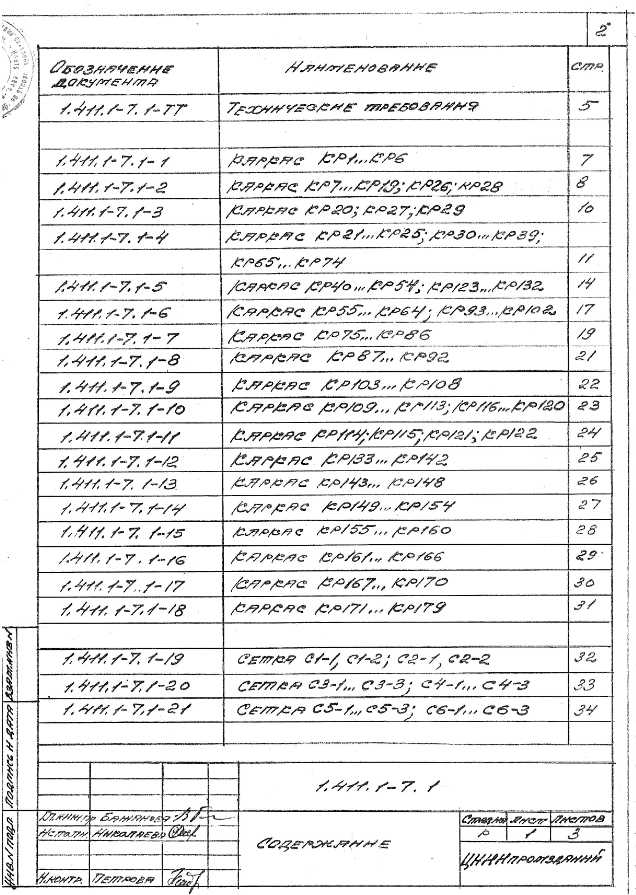 2
Обозначение документа Наименование Стр.
1.411.1-7.1-ТТ Технические требования 5
1.411.1-7.1-1 Каркас КР1...КР6 7
1.411.1-7.1-2 Каркас КР7...КР19; КР26; КР28 8
1.411.1-7.1-3 Каркас КР20; КР27; КР29 10
1.411.1-7.1-4 Каркас КР21...КР25; КР30...КР39;
КР65...КР74 11
1.411.1-7.1-5 Каркас КР40...КР54; КР123...КР132 14
1.411.1-7.1-6 Каркас КР55...КР64; КР93...КР102 17
1.411.1-7.1-7 Каркас КР75...КР86 19
1.411.1-7.1-8 Каркас КР87...КР92 21
1.411.1-7.1-9 Каркас КР103...КР108 22
1.411.1-7.1-10 Каркас КР109...КР113; КР116...КР120 23
1.411.1-7.1-11 Каркас КР114; КР115; КР121; КР122 24
1.411.1-7.1-12 Каркас КР133...КР142 25
1.411.1-7.1-13 Каркас КР143...КР148 26
1.411.1-7.1-14 Каркас КР149...КР154 27
1.411.1-7.1-15 Каркас КР155...КР160 28
1.411.1-7.1-16 Каркас КР161...КР166 29
1.411.1-7.1-17 Каркас КР167...КР170 30
1.411.1-7.1-18 Каркас КР171...КР179 31
1.411.1-7.1-19 Сетка С1-1, С1-2; С2-1, С2-2 32
1.411.1-7.1-20 Сетка С3-1...С3-3; С4-1...С4-3 33
1.411.1-7.1-21 Сетка С5-1...С5-3; С6-1...С6-3 34
Инв.N подл. Подпись и дата Взам.инв.N
1.411.1-7.1
Гл.инж.пр Бажанова
Исполн. Николаева
Н.контр. Петрова
Содержание
Стадия Лист Листов
Р 1 3
ЦНИИпромзданий